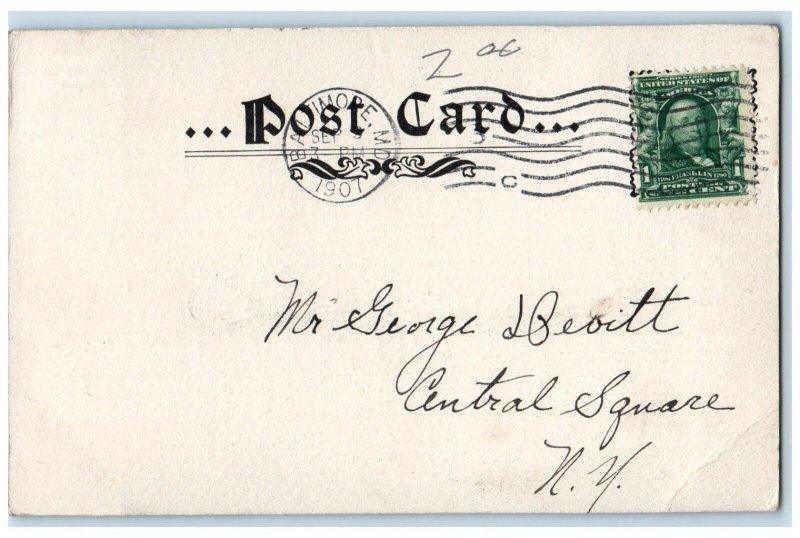 2 00
...Post Card...
BALTIMORE, MD.
SEP 9
7 PM
1907
C
SERIES 1902
UNITED STATES OF
AMERICA
1706 FRANKLIN 1790
POSTAGE
ONE CENT
Mr George DeVitt
Central Square
N.Y.